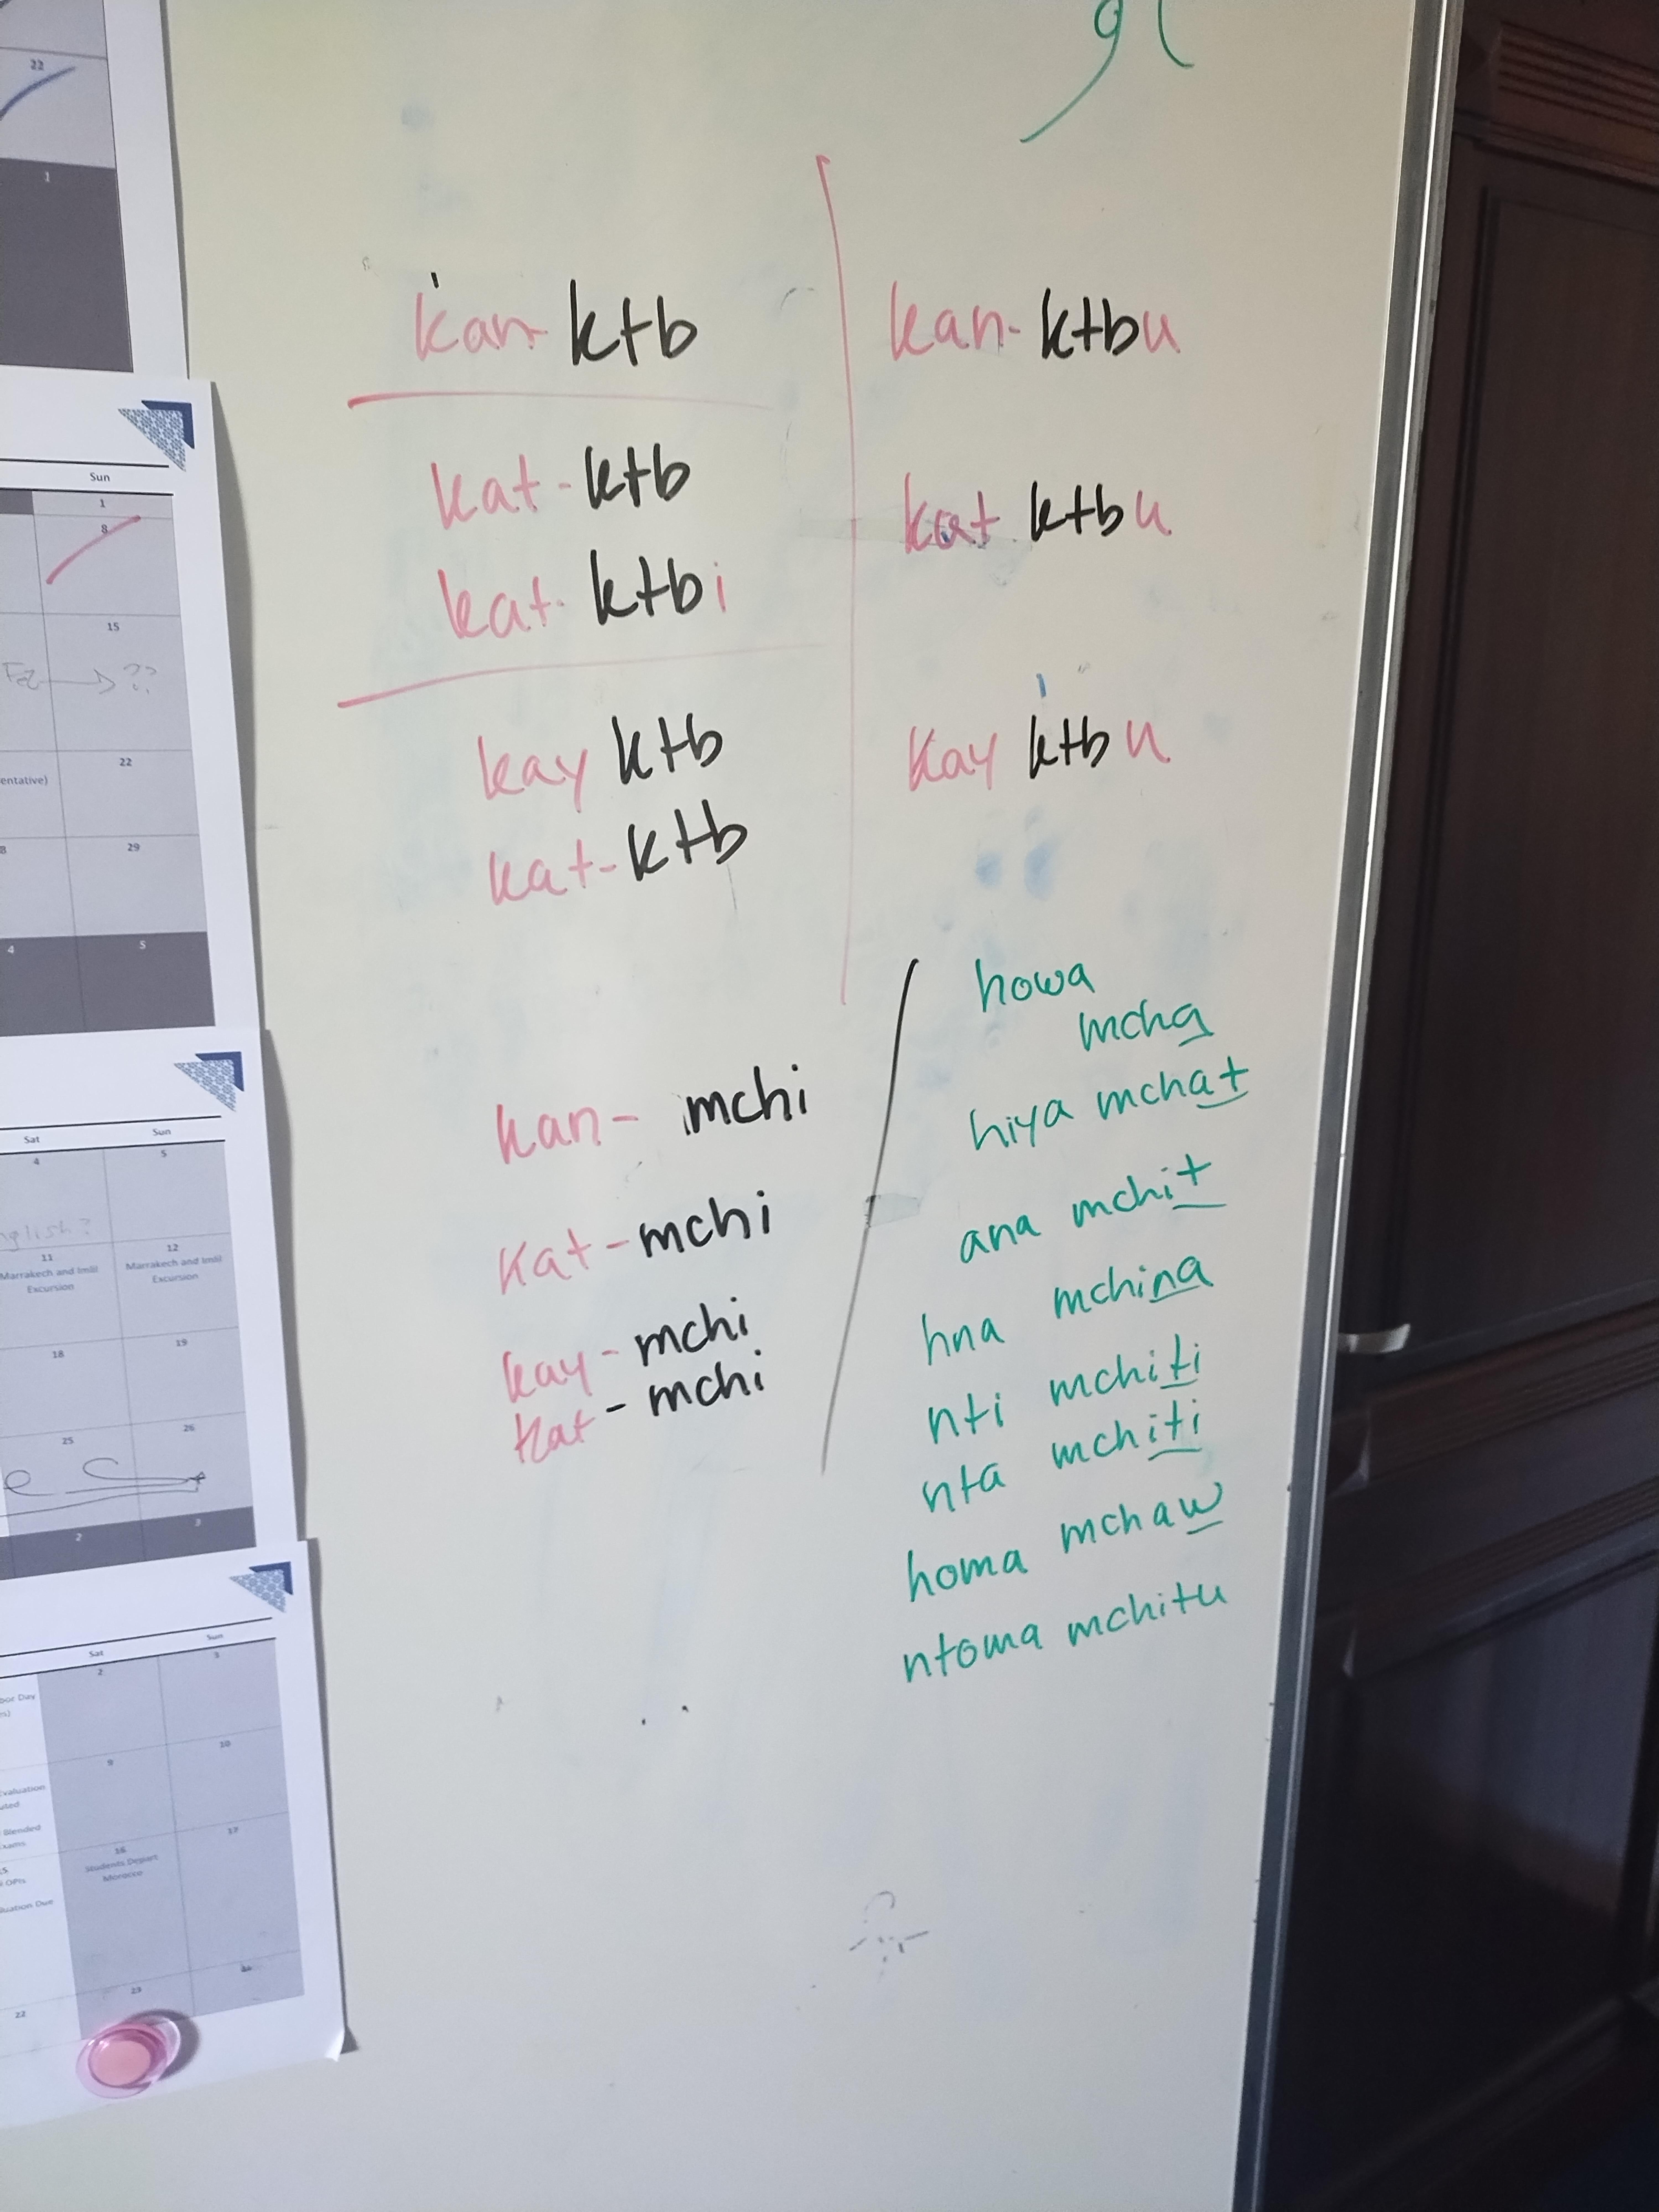 22
1
Sun
1
8
15
Fez → ??
entative)
22
29
4
5
Sat
Sun
4
5
nglish?
11
12
Marrakech and Imlil
Excursion
Marrakech and Imlil
Excursion
18
19
25
26
2
3
Sat
Sun
2
3
bor Day
9
10
Evaluation
Blended
Exams
16
17
Students Depart
Morocco
OPIs
uation Due
22
23
kan-ktb
kat-ktb
kat-ktbi
kay ktb
kat-ktb
kan-ktbu
kat ktbu
kay ktbu
kan- mchi
kat-mchi
kay-mchi
kat-mchi
howa
mcha
hiya mchat
ana mchit
hna mchina
nti mchiti
nta mchiti
homa mchaw
ntoma mchitu